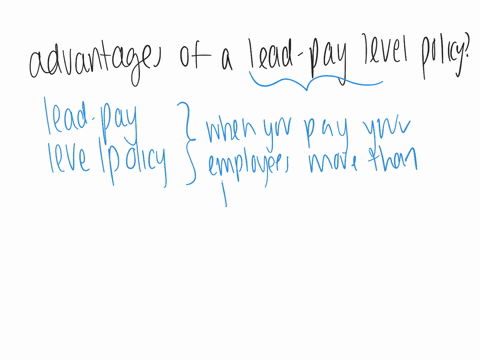 advantages of a lead-pay level policy?
lead-pay
level policy
when your pay your
employees more than